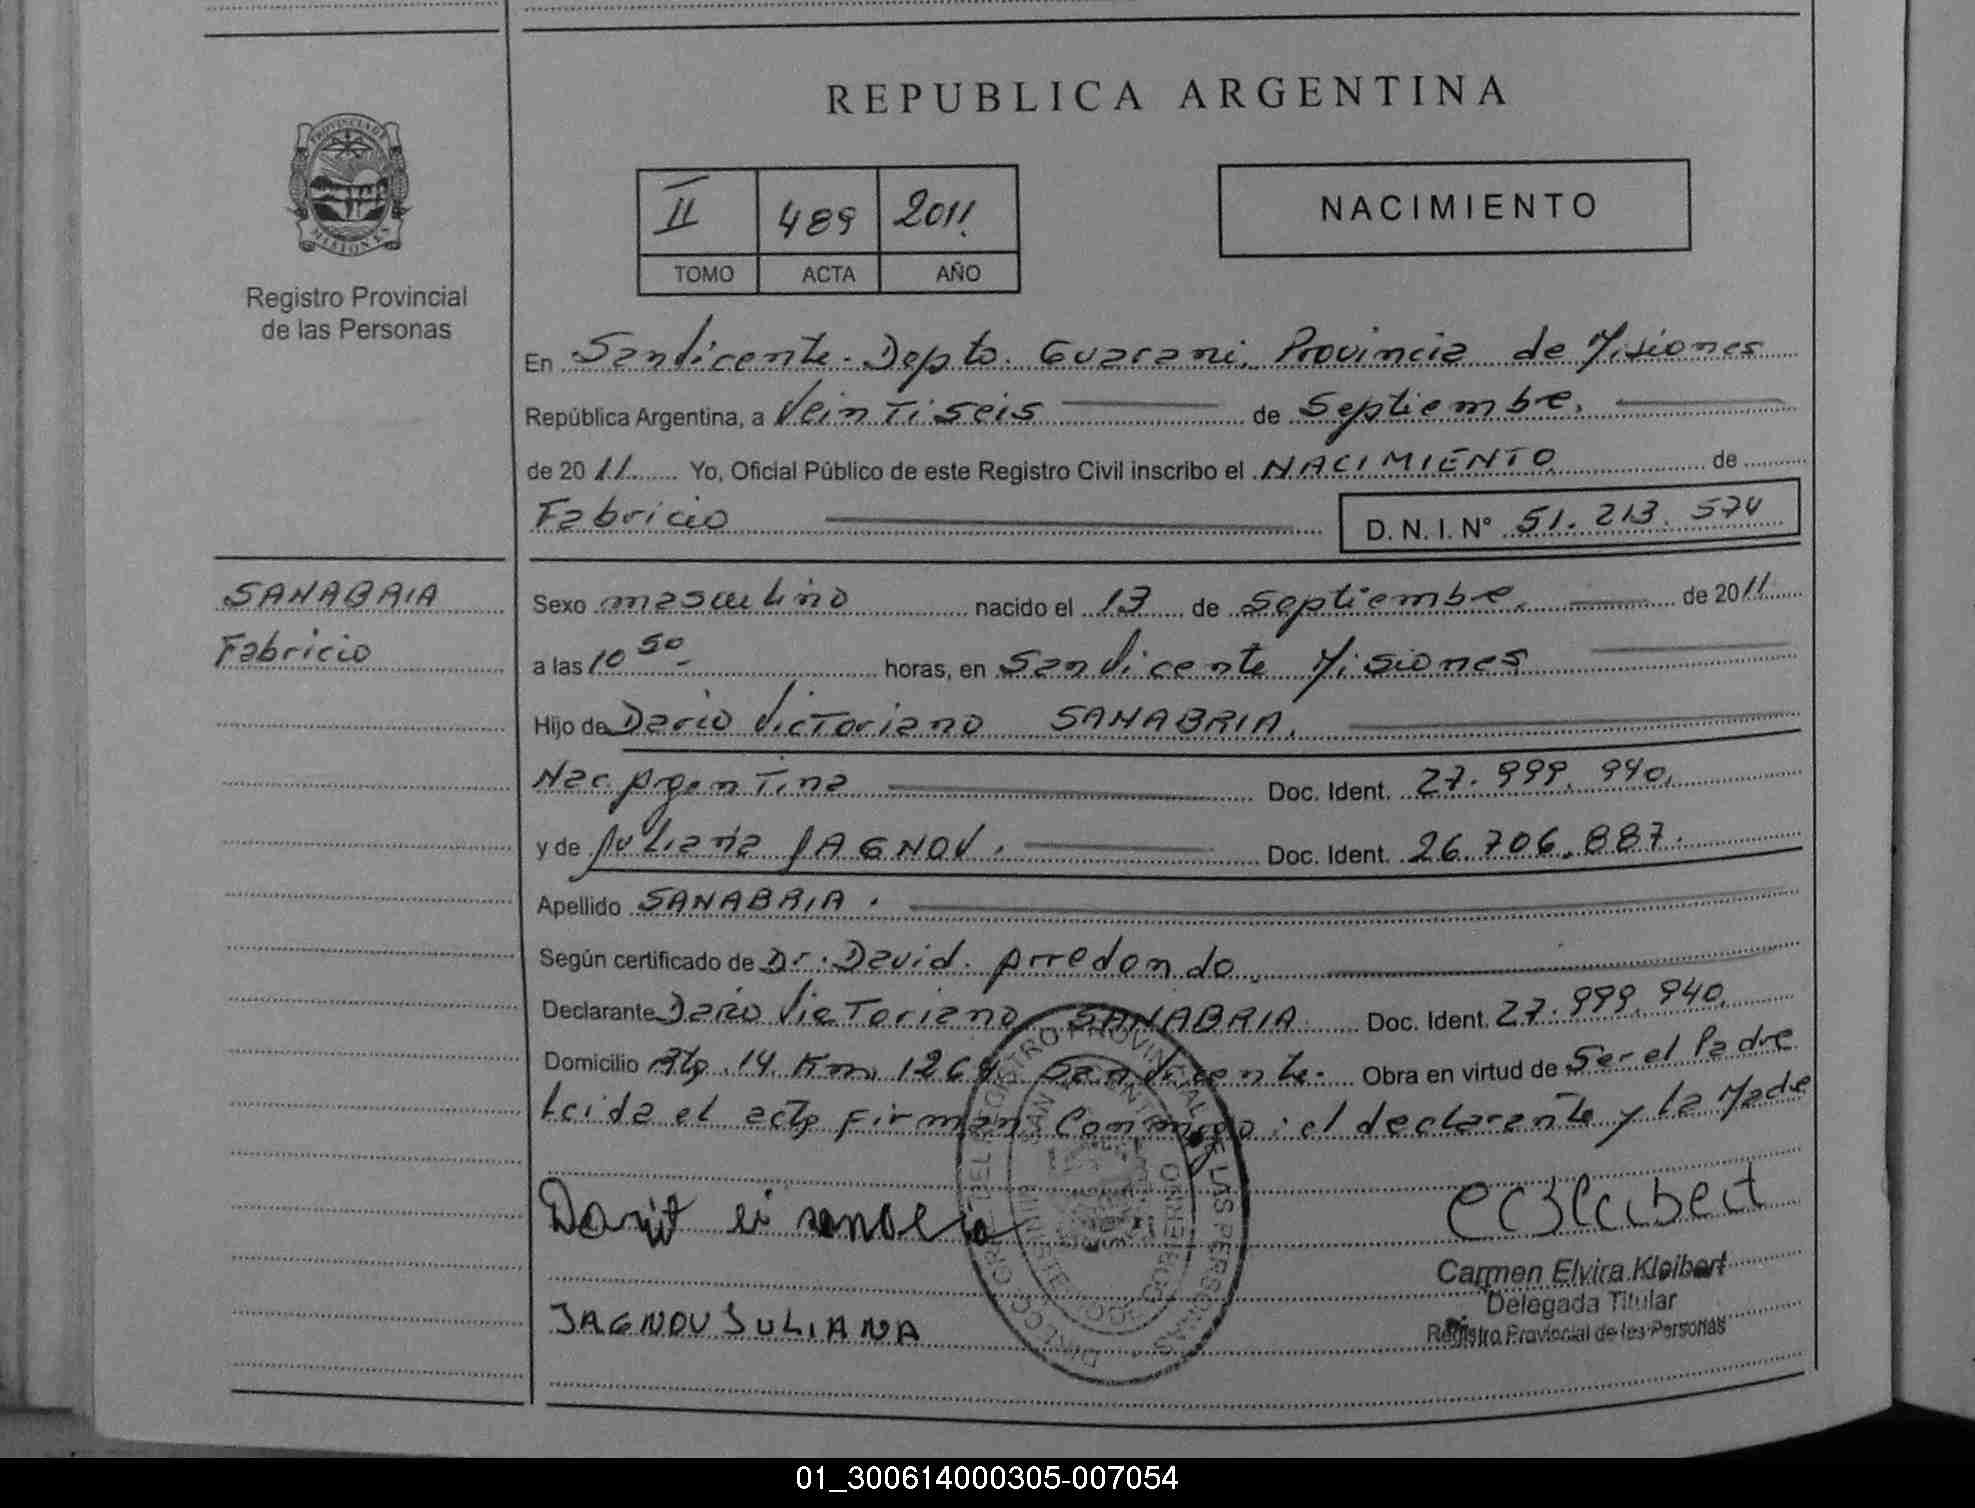 REPUBLICA ARGENTINA
PROVINCIA DE
MISIONES
Registro Provincial
de las Personas
II 489 2011
TOMO ACTA AÑO
NACIMIENTO
En San Vicente. Depto. Guarani. Provincia de Misiones
República Argentina, a Veintiseis de Septiembre.
de 2011 Yo, Oficial Público de este Registro Civil inscribo el NACIMIENTO de
Fabricio D. N. I. N° 51. 213. 574
SANABRIA
Fabricio
Sexo masculino nacido el 13 de Septiembre. de 2011
a las 10 50 horas, en San Vicente Misiones
Hijo de Dario Victoriano SANABRIA.
Nac. Argentina Doc. Ident. 27. 999. 940.
y de Juliana JAGNOV. Doc. Ident. 26. 706. 887.
Apellido SANABRIA.
Según certificado de Dr. David. Arredondo.
Declarante Dario Victoriano SANABRIA. Doc. Ident. 27. 999. 940.
Domicilio Rta. 14. Km. 1264 San Vicente. Obra en virtud de Ser el Padre
Leida el acta firman Conmigo: el declarante y la Madre
JAGNOV JULIANA
Carmen Elvira Kleibert
Delegada Titular
Registro Provincial de las Personas
01_300614000305-007054